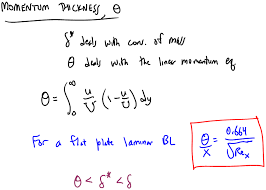 MOMENTUM THICKNESS, θ
δ* deals with cons. of mass
θ deals with the linear momentum eq
θ = ∫₀^∞ u/U (1 - u/U) dy
For a flat plate laminar BL
θ/x = 0.664/√Reₓ
θ < δ* < δ